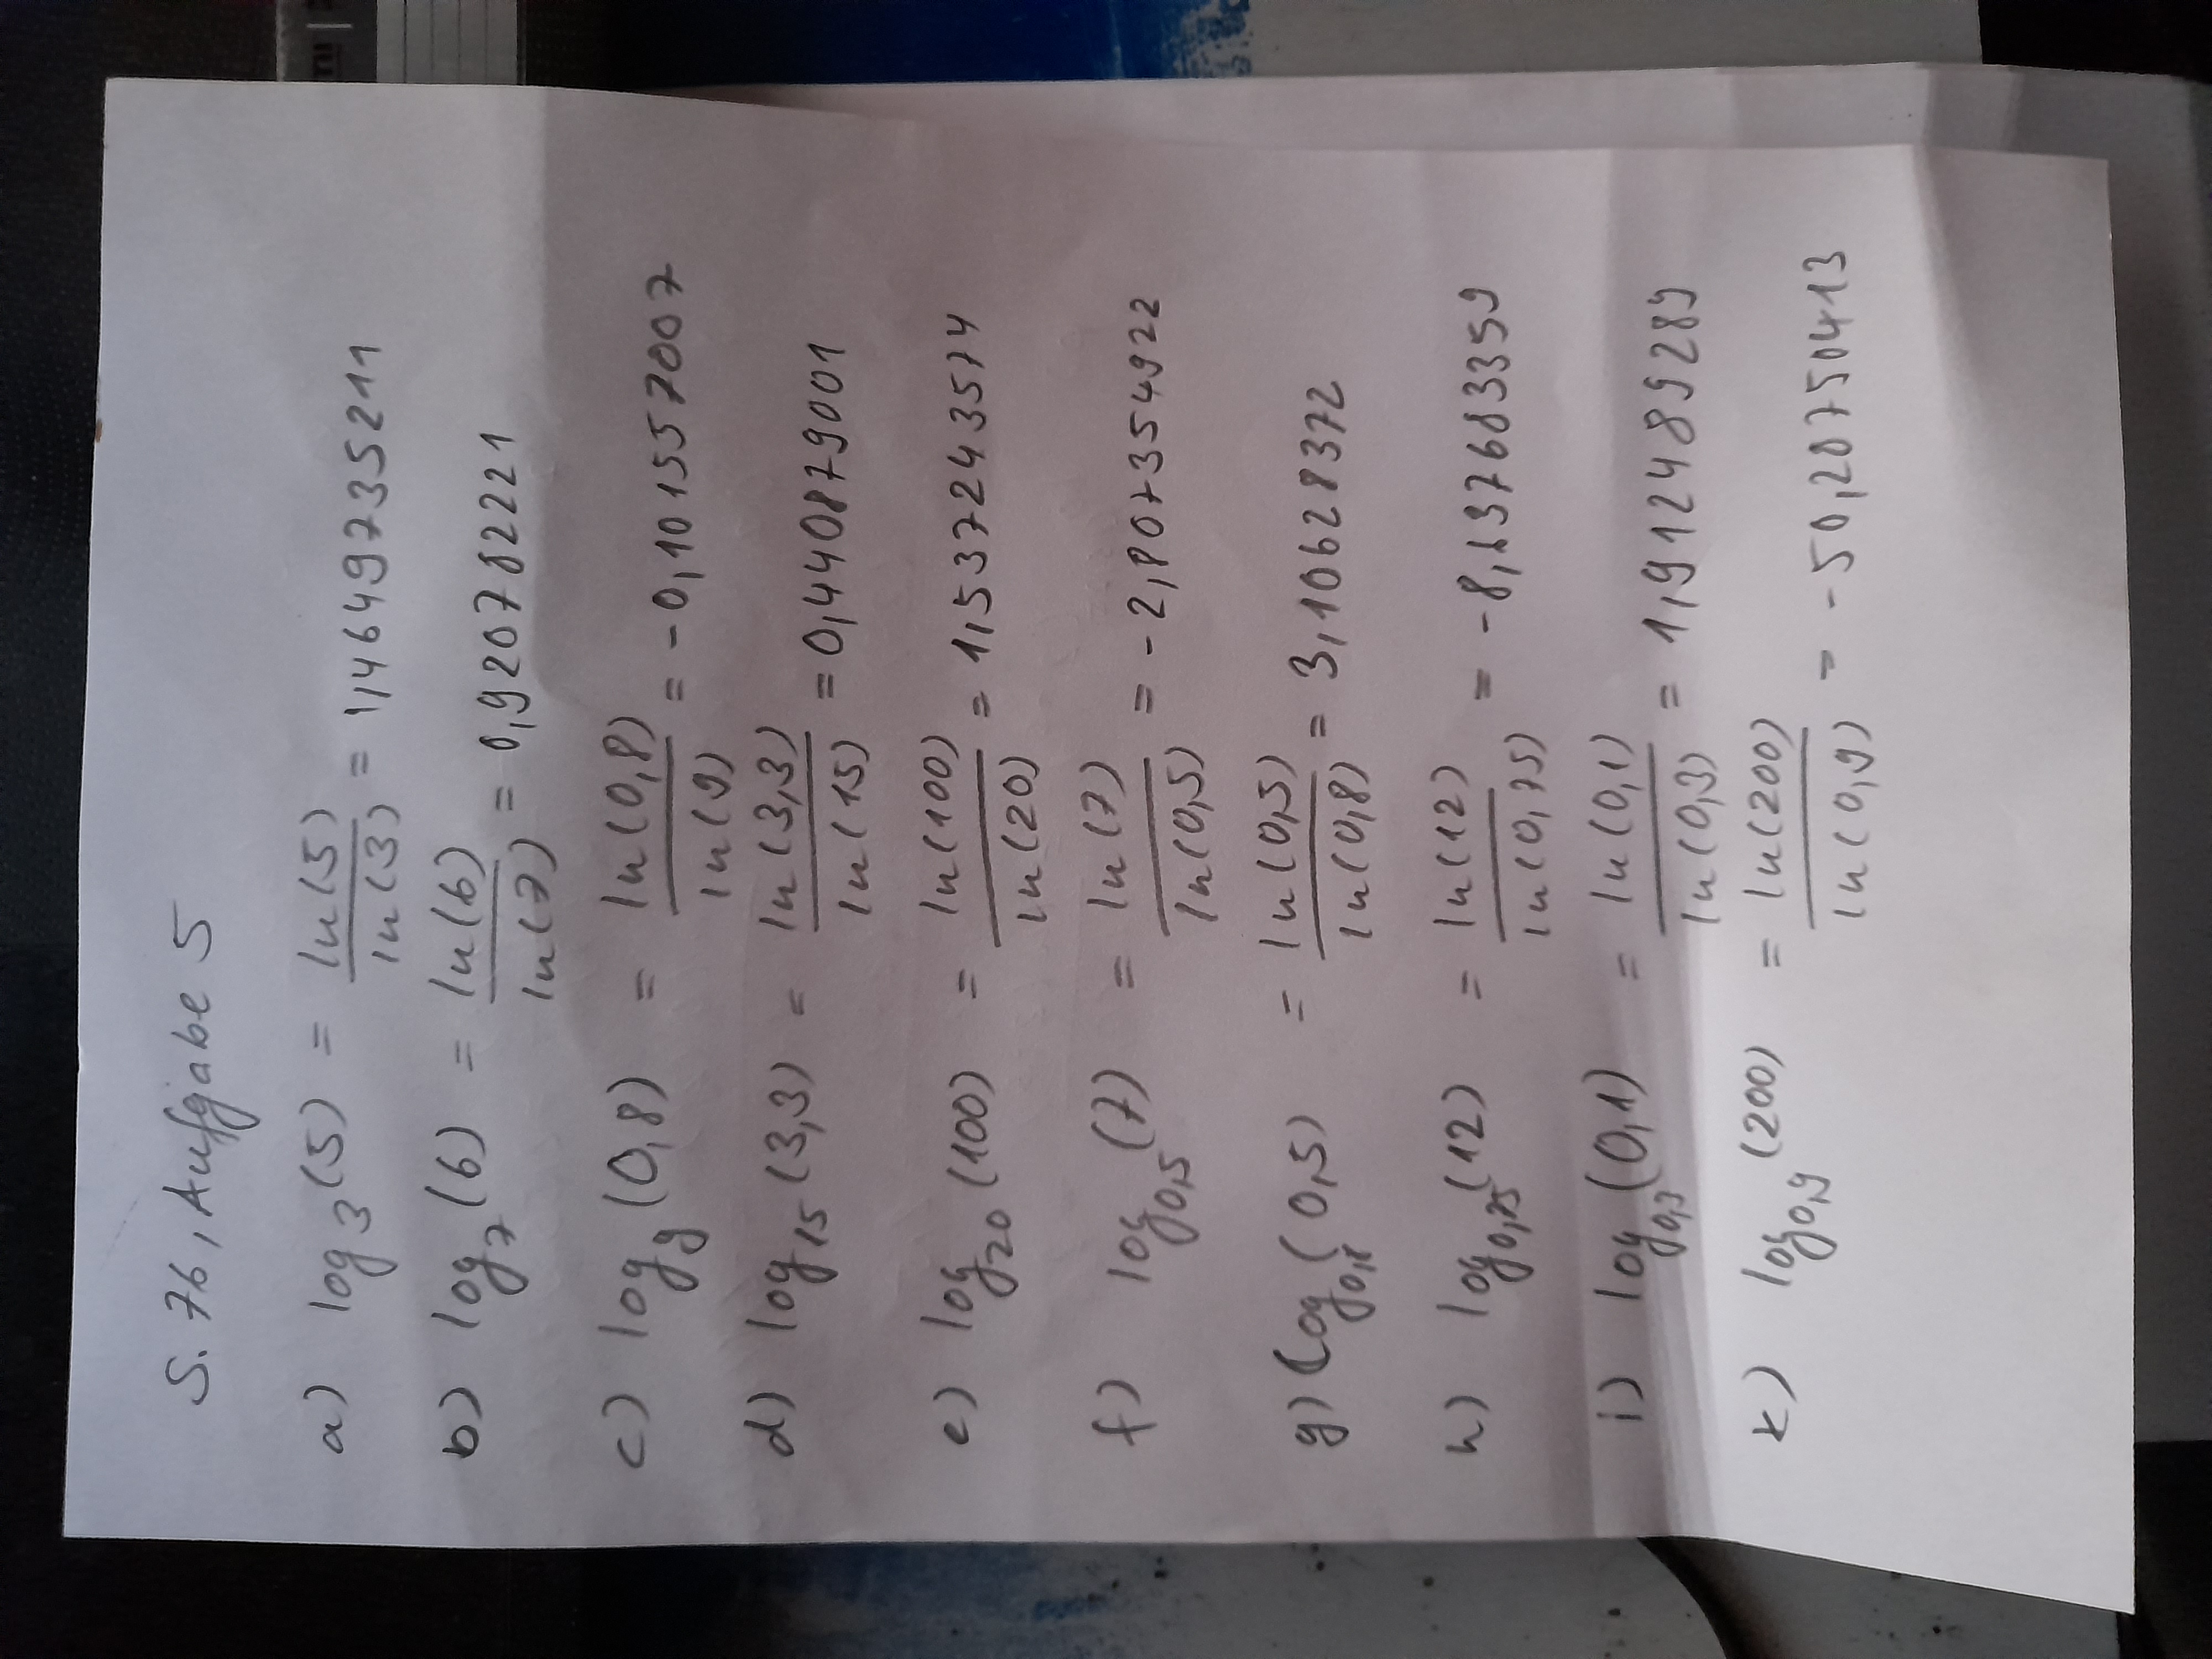 S. 76, Aufgabe 5
a) log₃(5) = ln(5)/ln(3) = 1,464973521
b) log₇(6) = ln(6)/ln(7) = 0,9207822211
c) log₉(0,8) = ln(0,8)/ln(9) = -0,101557007
d) log₁₅(3,3) = ln(3,3)/ln(15) = 0,4408879001
e) log₂₀(100) = ln(100)/ln(20) = 1,537243574
f) log₀,₅(7) = ln(7)/ln(0,5) = -2,807354922
g) log₀,₈(0,5) = ln(0,5)/ln(0,8) = 3,10628372
h) log₀,₇₅(12) = ln(12)/ln(0,75) = -8,637683359
i) log₀,₃(0,1) = ln(0,1)/ln(0,3) = 1,912489289
k) log₀,₉(200) = ln(200)/ln(0,9) = -50,28750413